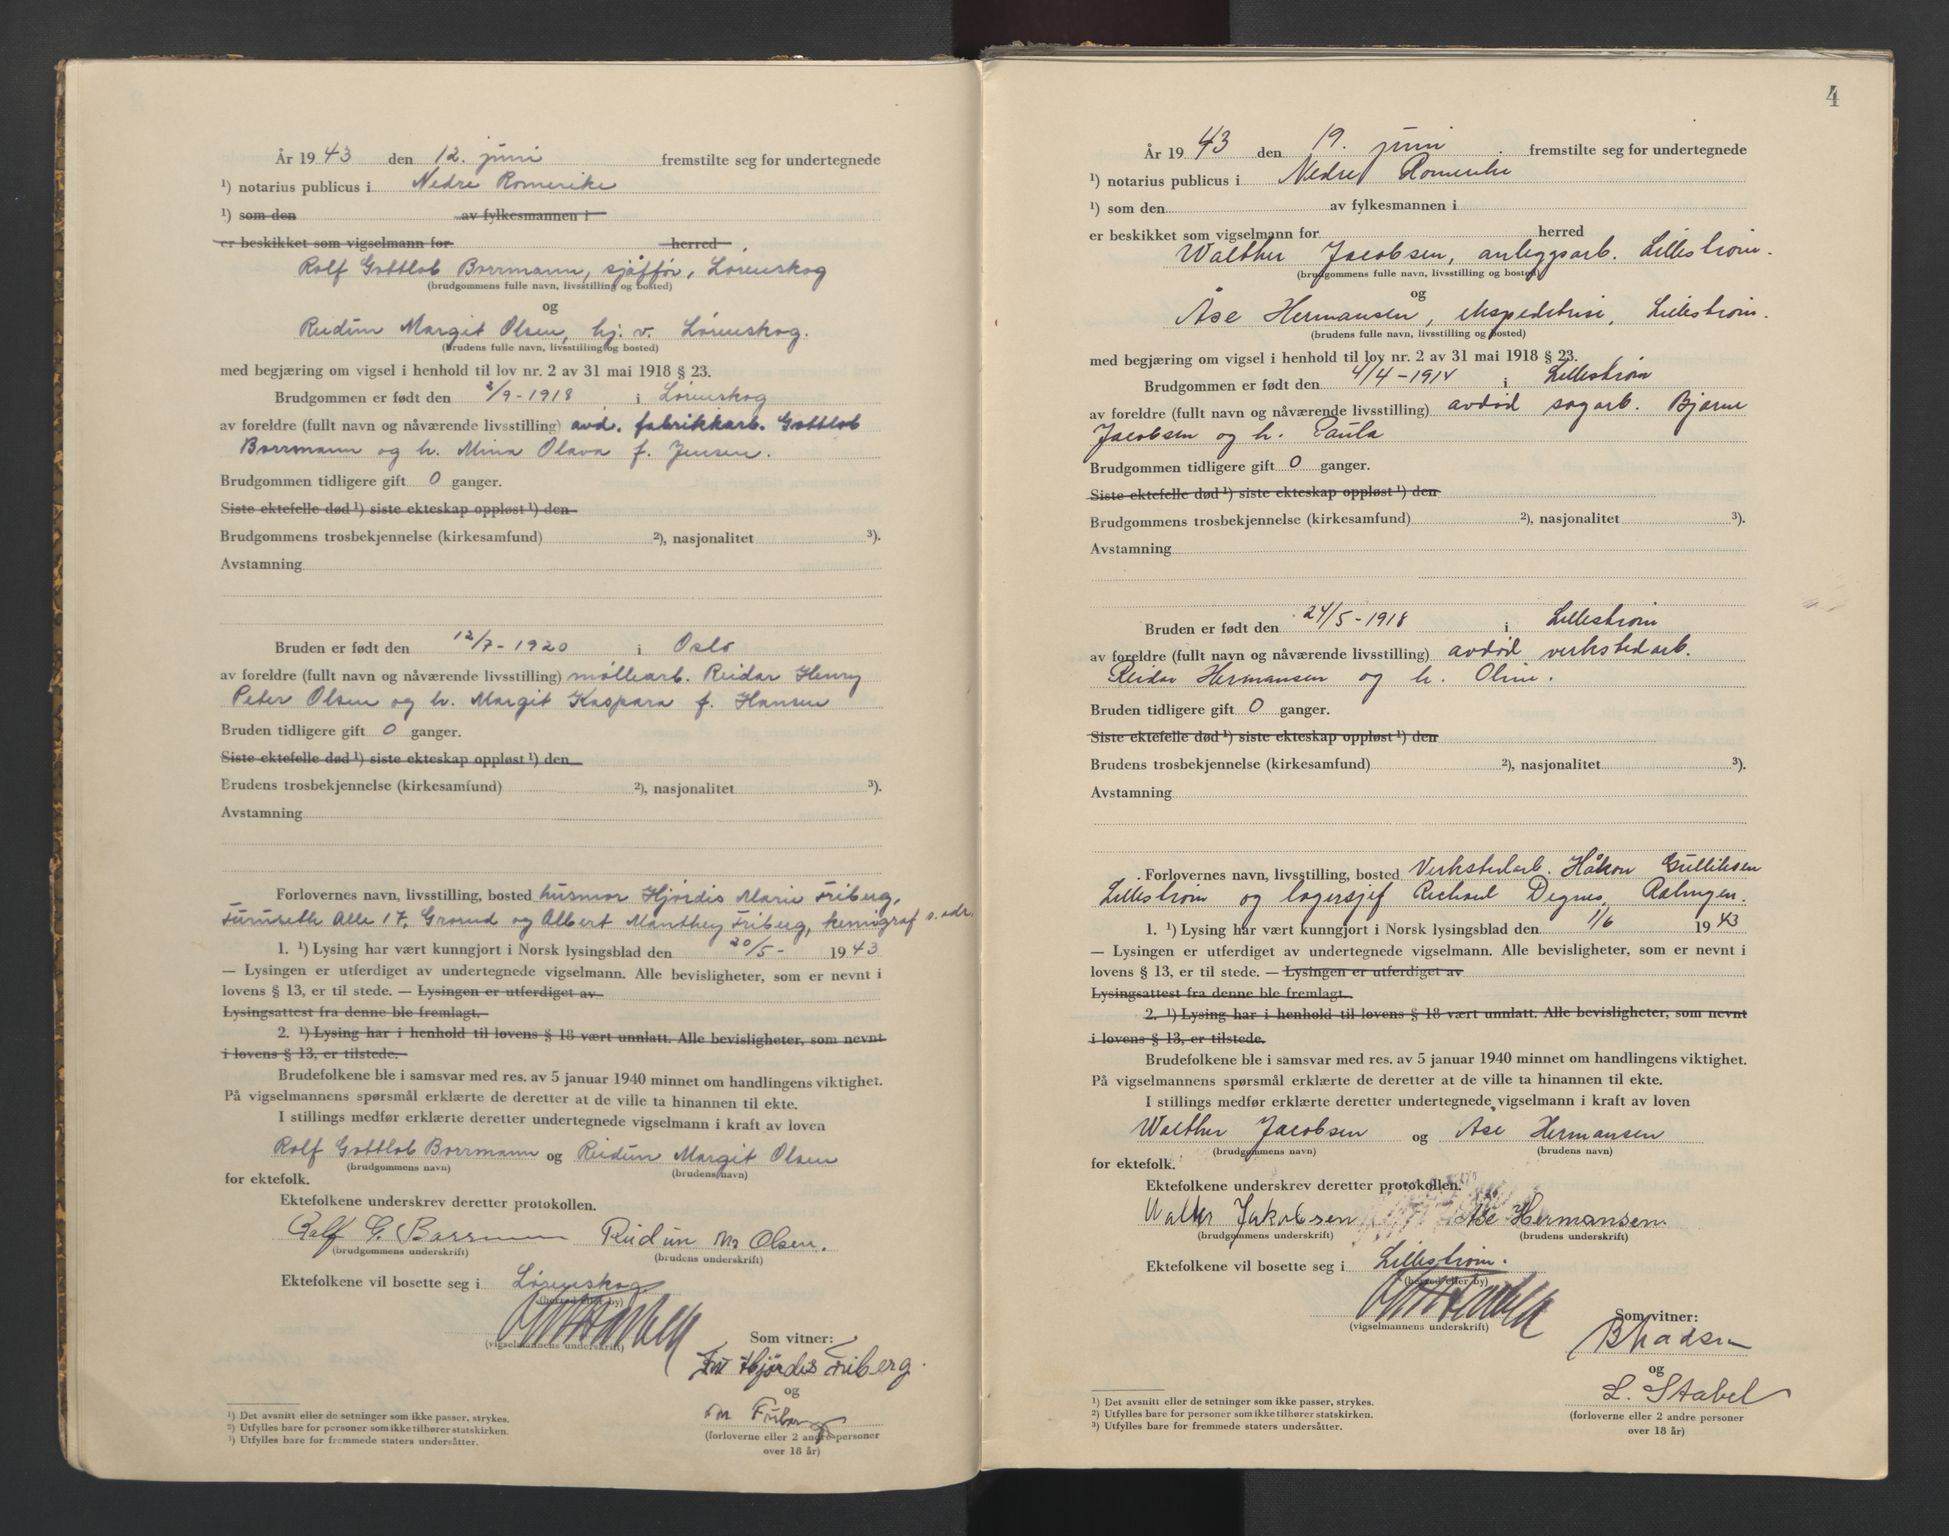 År 1943 den 12. juni fremstilte seg for undertegnede
¹) notarius publicus i Nedre Romerike
¹) som den av fylkesmannen i
er beskikket som vigselmann for herred
Rolf Gottlob Borrmann, sjåffør, Lørenskog
(brudgommens fulle navn, livsstilling og bosted)
og
Reidun Margit Olsen, hj. v. Lørenskog.
(brudens fulle navn, livsstilling og bosted)
med begjæring om vigsel i henhold til lov nr. 2 av 31 mai 1918 § 23.
Brudgommen er født den 2/9-1918 i Lørenskog
av foreldre (fullt navn og nåværende livsstilling) avd. fabrikkarb. Gottlob
Borrmann og h. Mina Olava f. Jensen.
Brudgommen tidligere gift 0 ganger.
Siste ektefelle død ¹) siste ekteskap oppløst ¹) den
Brudgommens trosbekjennelse (kirkesamfund) ²), nasjonalitet ³).
Avstamning
Bruden er født den 12/7-1920 i Oslo
av foreldre (fullt navn og nåværende livsstilling) møllearb. Reidar Henry
Peter Olsen og h. Margit Kaspara f. Hansen
Bruden tidligere gift 0 ganger.
Siste ektefelle død ¹) siste ekteskap oppløst ¹) den
Brudens trosbekjennelse (kirkesamfund) ²), nasjonalitet ³).
Avstamning
Forlovernes navn, livsstilling, bosted husmor Hjørdis Marie Friberg,
Furuseth Alle 17, Grorud og Albert Manthey Friberg, kemigraf s. adr.
1. ¹) Lysing har vært kunngjort i Norsk lysingsblad den 20/5- 1943
— Lysingen er utferdiget av undertegnede vigselmann. Alle bevisligheter, som er nevnt i
lovens § 13, er til stede. — Lysingen er utferdiget av
Lysingsattest fra denne ble fremlagt.
2. ¹) Lysing har i henhold til lovens § 18 vært unnlatt. Alle bevisligheter, som nevnt
i lovens § 13, er tilstede.
Brudefolkene ble i samsvar med res. av 5 januar 1940 minnet om handlingens viktighet.
På vigselmannens spørsmål erklærte de deretter at de ville ta hinannen til ekte.
I stillings medfør erklærte deretter undertegnede vigselmann i kraft av loven
Rolf Gottlob Borrmann og Reidun Margit Olsen
(brudgommens navn) (brudens navn)
for ektefolk.
Ektefolkene underskrev deretter protokollen.
Rolf G. Borrmann Reidun M Olsen.
(brudgommens underskrift) (brudens underskrift)
Ektefolkene vil bosette seg i Lørenskog
(herred eller by)
(vigselmannens underskrift) Som vitner:
Hjørdis Friberg.
og
Friberg
(forloverne eller 2 andre personer
over 18 år)
¹) Det avsnitt eller de setninger som ikke passer, strykes.
²) Utfylles bare for personer som ikke tilhører statskirken.
³) Utfylles bare for fremmede staters undersåtter.
4
År 1943 den 19. juni fremstilte seg for undertegnede
¹) notarius publicus i Nedre Romerike
¹) som den av fylkesmannen i
er beskikket som vigselmann for herred
Walther Jacobsen, anleggsarb. Lillestrøm.
(brudgommens fulle navn, livsstilling og bosted)
og
Åse Hermansen, ekspeditrise, Lillestrøm.
(brudens fulle navn, livsstilling og bosted)
med begjæring om vigsel i henhold til lov nr. 2 av 31 mai 1918 § 23.
Brudgommen er født den 4/4-1914 i Lillestrøm
av foreldre (fullt navn og nåværende livsstilling) avdød sagarb. Bjarne
Jacobsen og h. Paula
Brudgommen tidligere gift 0 ganger.
Siste ektefelle død ¹) siste ekteskap oppløst ¹) den
Brudgommens trosbekjennelse (kirkesamfund) ²), nasjonalitet ³).
Avstamning
Bruden er født den 24/5-1918 i Lillestrøm
av foreldre (fullt navn og nåværende livsstilling) avdød verkstedarb.
Reidar Hermansen og h. Oline.
Bruden tidligere gift 0 ganger.
Siste ektefelle død ¹) siste ekteskap oppløst ¹) den
Brudens trosbekjennelse (kirkesamfund) ²), nasjonalitet ³).
Avstamning
Forlovernes navn, livsstilling, bosted Verkstedarb. Håkon Gulliksen
Lillestrøm og lagersjef Richard Degnes, Rælingen.
1. ¹) Lysing har vært kunngjort i Norsk lysingsblad den 1/6 1943
— Lysingen er utferdiget av undertegnede vigselmann. Alle bevisligheter, som er nevnt i
lovens § 13, er til stede. — Lysingen er utferdiget av
Lysingsattest fra denne ble fremlagt.
2. ¹) Lysing har i henhold til lovens § 18 vært unnlatt. Alle bevisligheter, som nevnt
i lovens § 13, er tilstede.
Brudefolkene ble i samsvar med res. av 5 januar 1940 minnet om handlingens viktighet.
På vigselmannens spørsmål erklærte de deretter at de ville ta hinannen til ekte.
I stillings medfør erklærte deretter undertegnede vigselmann i kraft av loven
Walther Jacobsen og Åse Hermansen
(brudgommens navn) (brudens navn)
for ektefolk.
Ektefolkene underskrev deretter protokollen.
Walther Jakobsen Åse Hermansen.
(brudgommens underskrift) (brudens underskrift)
Ektefolkene vil bosette seg i Lillestrøm.
(herred eller by)
(vigselmannens underskrift) Som vitner:
B Madsen
og
L. Stabel
(forloverne eller 2 andre personer
over 18 år)
¹) Det avsnitt eller de setninger som ikke passer, strykes.
²) Utfylles bare for personer som ikke tilhører statskirken.
³) Utfylles bare for fremmede staters undersåtter.